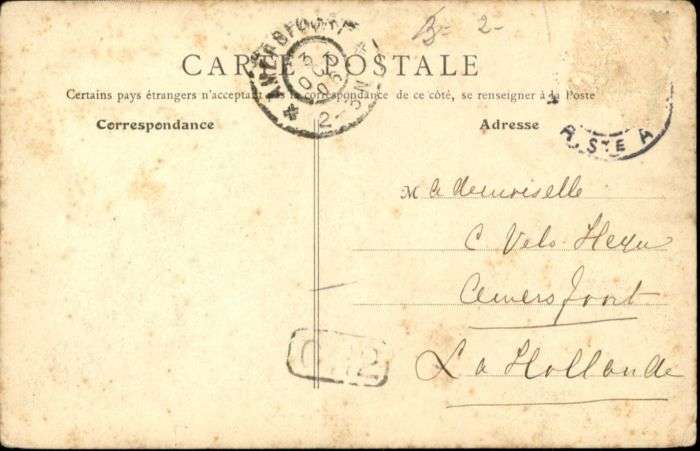 B= 2-
CARTE POSTALE
Certains pays étrangers n'acceptant pas la correspondance de ce côté, se renseigner à la Poste
Correspondance
Adresse
Mademoiselle
C Vels Heyn
Amersfoort
La Hollande
AMERSFOORT
2-5N
STE A